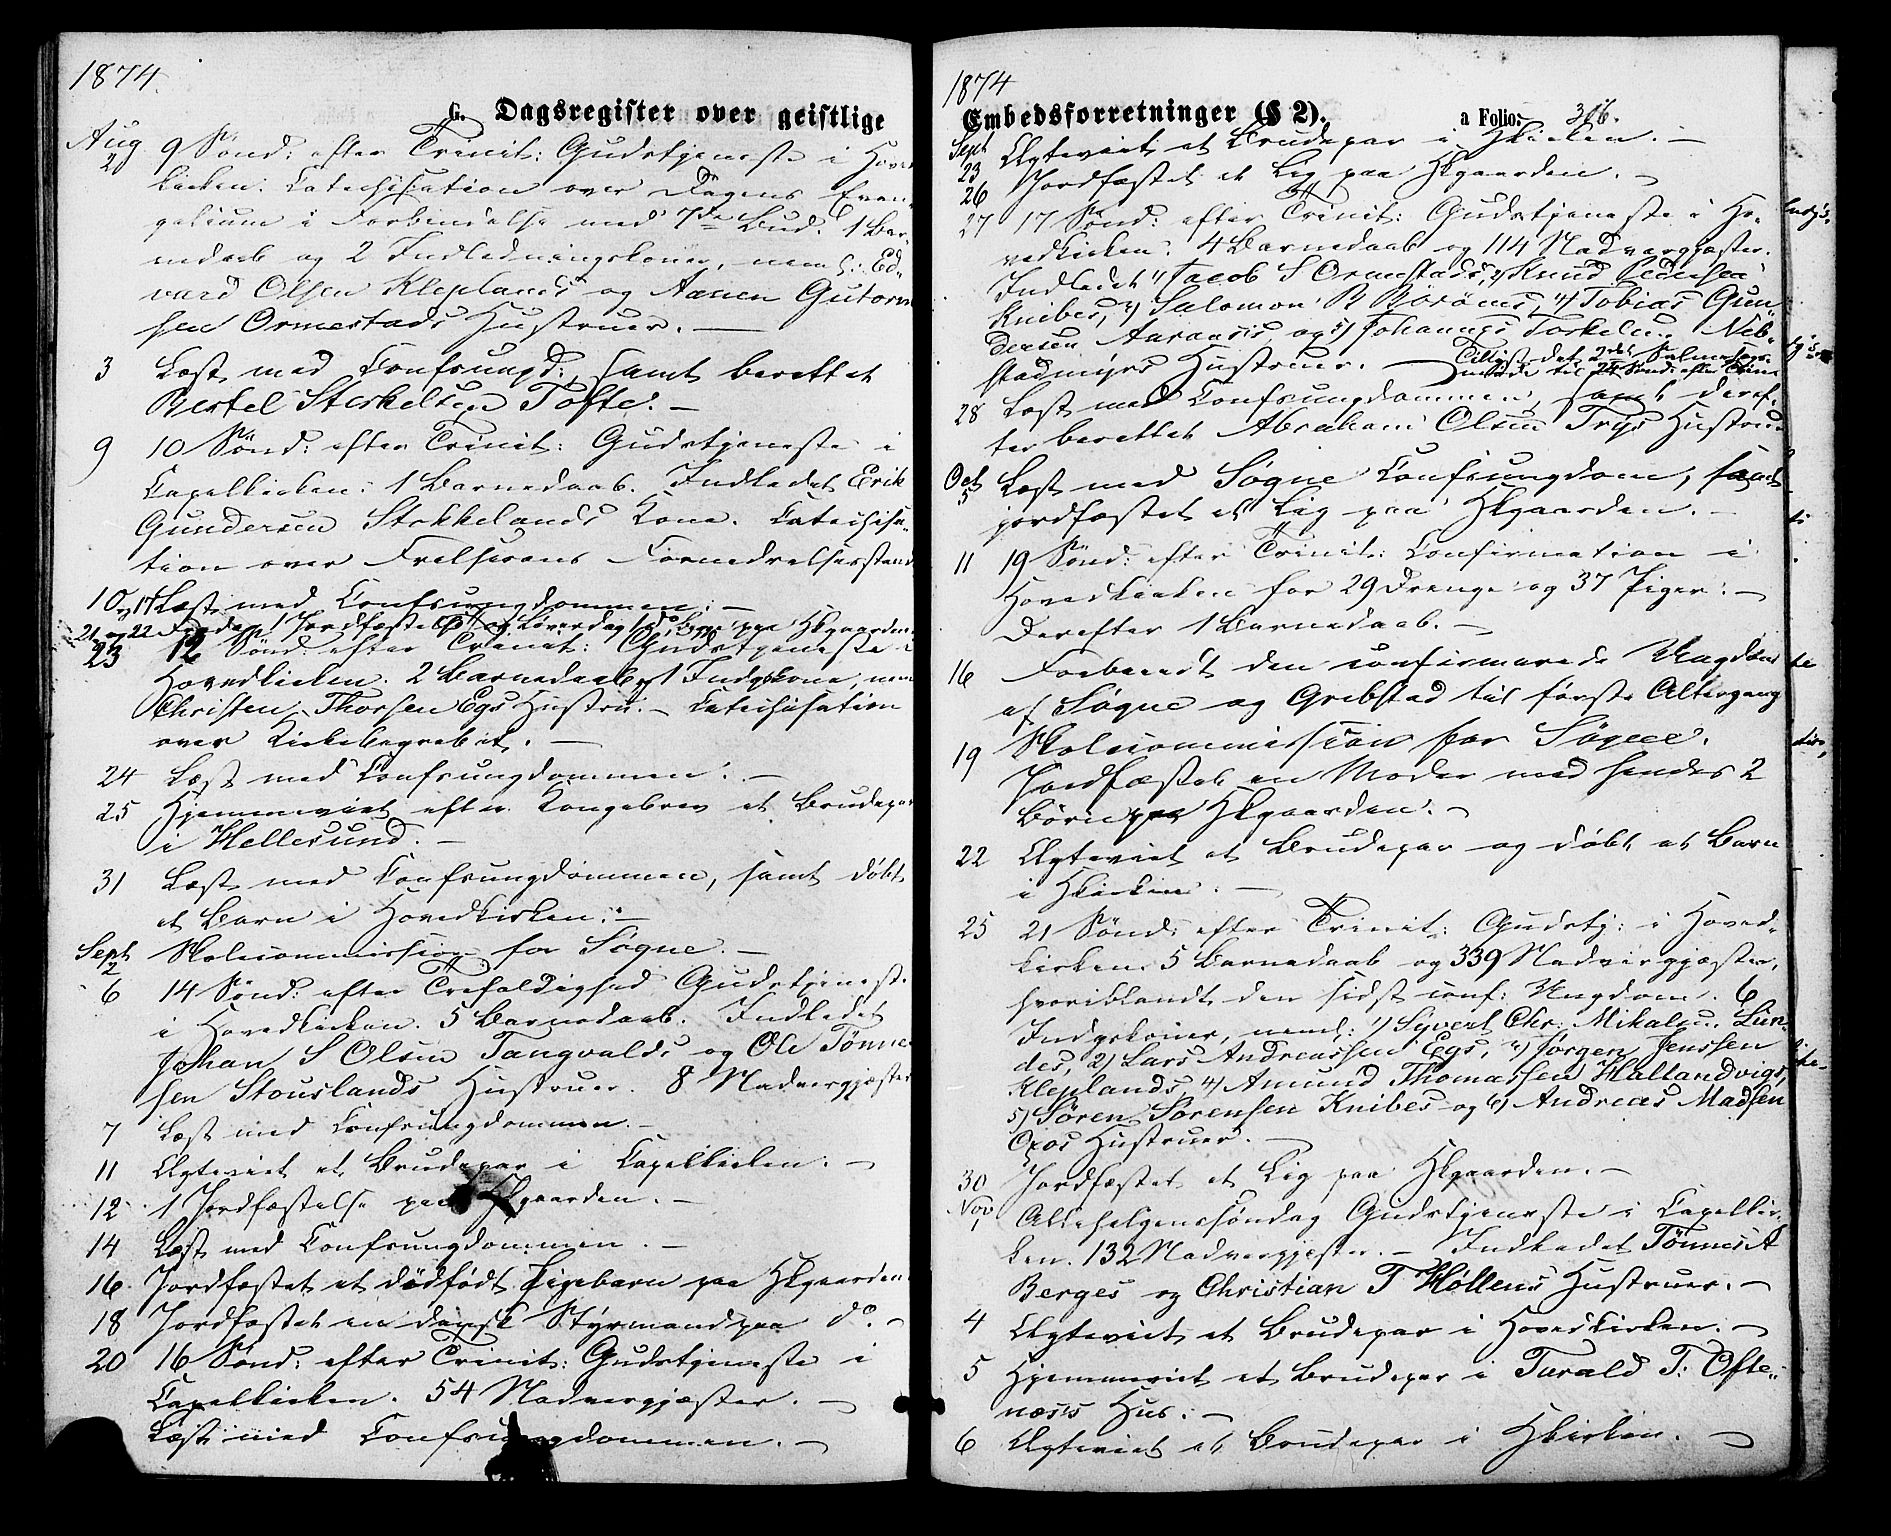 1874.
G. Dagsregister over geistlige
Aug
2 9 Sønd: efter Trinit: Gudstjeneste i Hoved
kirken. Catechisation over Dagens Evan-
gelium i Forbindelse med 7de Bud. 1 Bar-
nedaab og 2 Indledningskoner, neml: Ed-
vard Olsen Kleplands og Aanen Gutorm
sen Ormestads Hustruer. —
3 Læst med Confungd:, samt berettet
Bertel Sterkelsen Tofte. —
9 10 Sønd: efter Trinit: Gudstjeneste i
Capelkirken. 1 Barnedaab. Indledet Erik
Gundersen Stokkelands Kone. Catechisa-
tion over Frelserens Fornedrelsesstand
10 og 17 Læst med Confungdommen. —
21 og 22 Fredag 1 Jordfæstelse og Løverdag 1 do, begge paa Hkgaarden
23 12 Sønd: efter Trinit: Gudstjeneste i
Hovedkirken. 2 Barnedaab og 1 Indgskone, neml
Christen Thorsen Egs Hustru. — Catechisation
over Kirkebegrebet. —
24 Læst med Confungdommen. —
25 Hjemmeviet efter Kongebrev et Brudepar
i Hellesund. —
31 Læst med Confungdommen, samt døbt
et Barn i Hovedkirken. —
Sept
2 Skolecommission for Søgne. —
6 14 Sønd: efter Trefoldighed Gudstjeneste
i Hovedkirken. 5 Barnedaab. Indledet
Johan S Olsen Tangvalds og Ole Tønne
sen Stouslands Hustruer. 8 Nadvergjæster
7 Læst med Confungdommen. —
11 Ægteviet et Brudepar i Capelkirken. —
12 1 Jordfæstelse paa Hkgaarden. —
14 Læst med Confungdommen. —
16 Jordfæstet et dødfødt Pigebarn paa Hkgaarden
18 Jordfæstet en dansk Styrmand paa do. —
20 16 Sønd: efter Trinit: Gudstjeneste i
Capelkirken. 54 Nadvergjæster. —
Læst med Confungdommen. —
1874
Embedsforretninger (§ 2). a Folio: 316.
Sept
23 Ægteviet et Brudepar i Hkirken. —
26 Jordfæstet et Lig paa Hkgaarden. —
27 17 Sønd: efter Trinit: Gudstjeneste i Ho-
vedkirken. 4 Barnedaab og 114 Nadvergjæster.
Indledet 1) Jacob S Ormestads, 2) Knud Pedersen
Knibes, 3) Salomon B Borøens, 4) Tobias Gun-
dersen Aaraasis, og 5) Johannes Torkelsen Neb-
stadmyrs Hustruer. — Tillyst det 2det
til 24 Sønd: efter Trinit
28 Læst med Confungdommen, samt deref-
ter berettet Abraham Olsen Trys Hustru
Oct
5 Læst med Søgne Confungdom, samt
jordfæstet et Lig paa Hkgaarden. —
11 19 Sønd: efter Trinit: Confirmation i
Hovedkirken for 29 Drenge og 37 Piger. —
Derefter 1 Barnedaab. —
16 Forberedt den confirmerede Ungdom
af Søgne og Grebstad til første Altergang
19 Skolecommission for Søgne.
Jordfæstet en Moder med hendes 2
Børn paa Hkgaarden. —
22 Ægteviet et Brudepar og døbt et Barn
i Hkirken. —
25 21 Sønd: efter Trinit: Gudstj: i Hoved-
kirken. 5 Barnedaab og 339 Nadvergjæster,
hvoriblandt den sidst conf: Ungdom. 6
Indgskoner, neml: 1) Syvert Chr. Mikalsen Lun-
des, 2) Lars Andreassen Egs, 3) Jørgen Jenssen
Kleplands, 4) Amund Thomassen Hallandvigs,
5) Søren Sørensen Knibes og 6) Andreas Madsen
Oxøs Hustruer. —
30 Jordfæstet et Lig paa Hkgaarden. —
Nov
1 Allehelgenssøndag Gudstjeneste i Capelkir-
ken. 132 Nadvergjæster. — Indledet Tønnes A
Berges og Christian T Høllens Hustruer. —
4 Ægteviet et Brudepar i Hovedkirken. —
5 Hjemmeviet et Brudepar i Tarald T: Ofte-
næs's Hus. —
6 Ægteviet et Brudepar i Hkirken. —